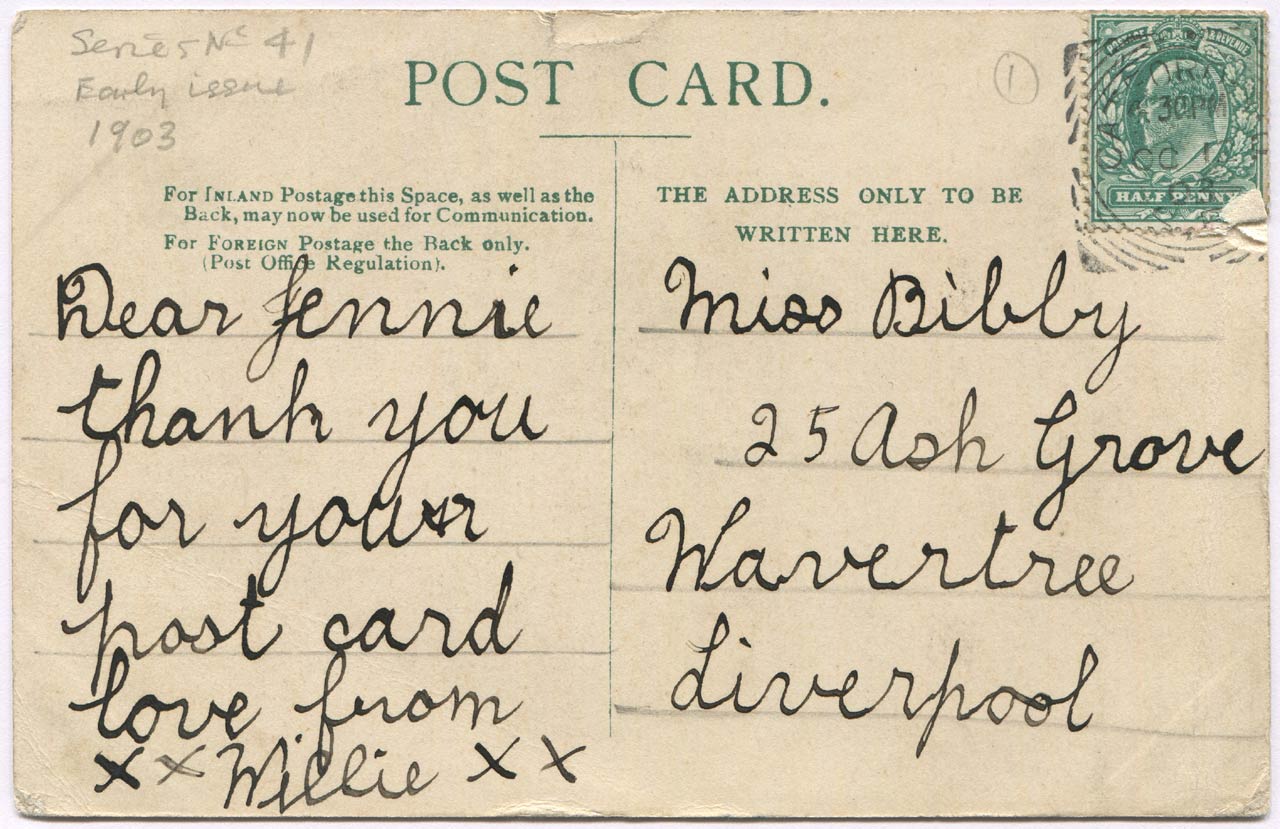 Series No 41
Early issue
1903
POST CARD.
1
POSTAGE & REVENUE
30PM
OC
03
HALF PENNY
For INLAND Postage this Space, as well as the
Back, may now be used for Communication.
For FOREIGN Postage the Back only.
(Post Office Regulation).
THE ADDRESS ONLY TO BE
WRITTEN HERE.
Dear Jennie
thank you
for your
post card
love from
x x Willie x x
Miss Bibby
25 Ash Grove
Wavertree
Liverpool